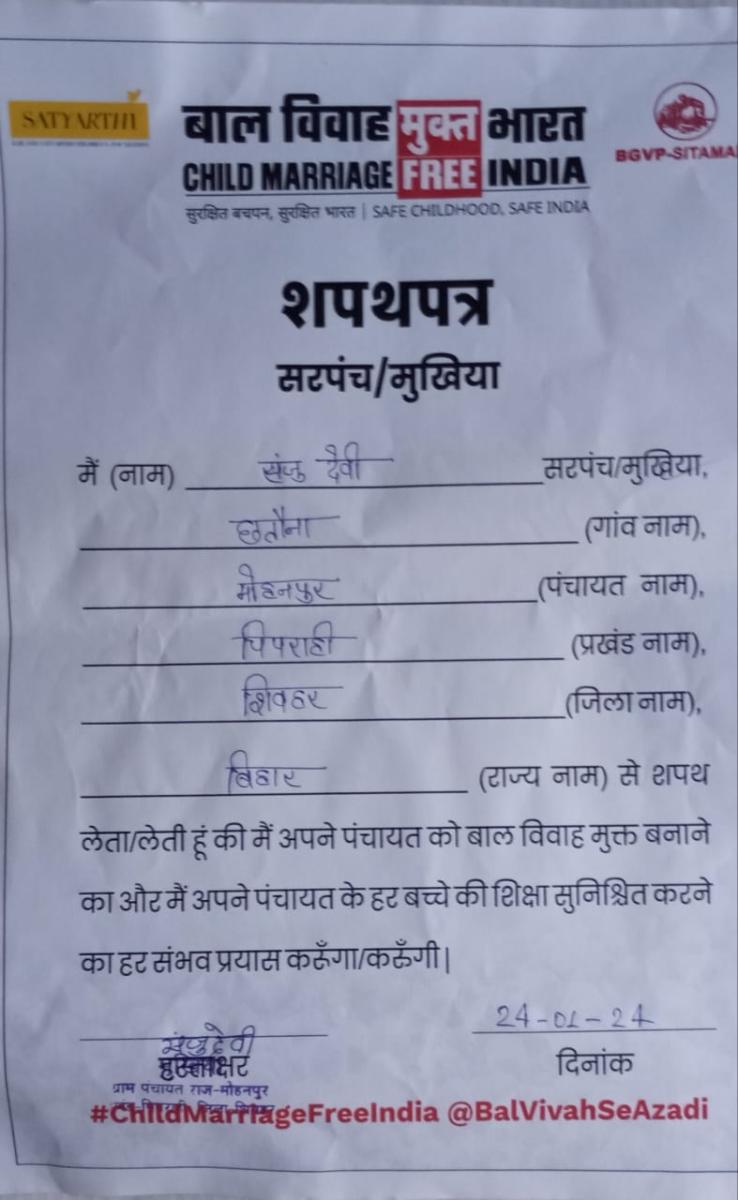 SATYARTHI
बाल विवाह मुक्त भारत
CHILD MARRIAGE FREE INDIA
सुरक्षित बचपन, सुरक्षित भारत | SAFE CHILDHOOD, SAFE INDIA
BGVP-SITAMA
शपथपत्र
सरपंच/मुखिया
मैं (नाम) संजु देवी सरपंच/मुखिया,
छतौना (गांव नाम),
मोहनपुर (पंचायत नाम),
पिपराही (प्रखंड नाम),
शिवहर (जिला नाम),
बिहार (राज्य नाम) से शपथ
लेता/लेती हूं की मैं अपने पंचायत को बाल विवाह मुक्त बनाने
का और मैं अपने पंचायत के हर बच्चे की शिक्षा सुनिश्चित करने
का हर संभव प्रयास करूँगा/करुँगी।
संजु देवी
हस्ताक्षर
ग्राम पंचायत राज-मोहनपुर
24-01-24
दिनांक
#ChildMarriageFreeIndia @BalVivahSeAzadi